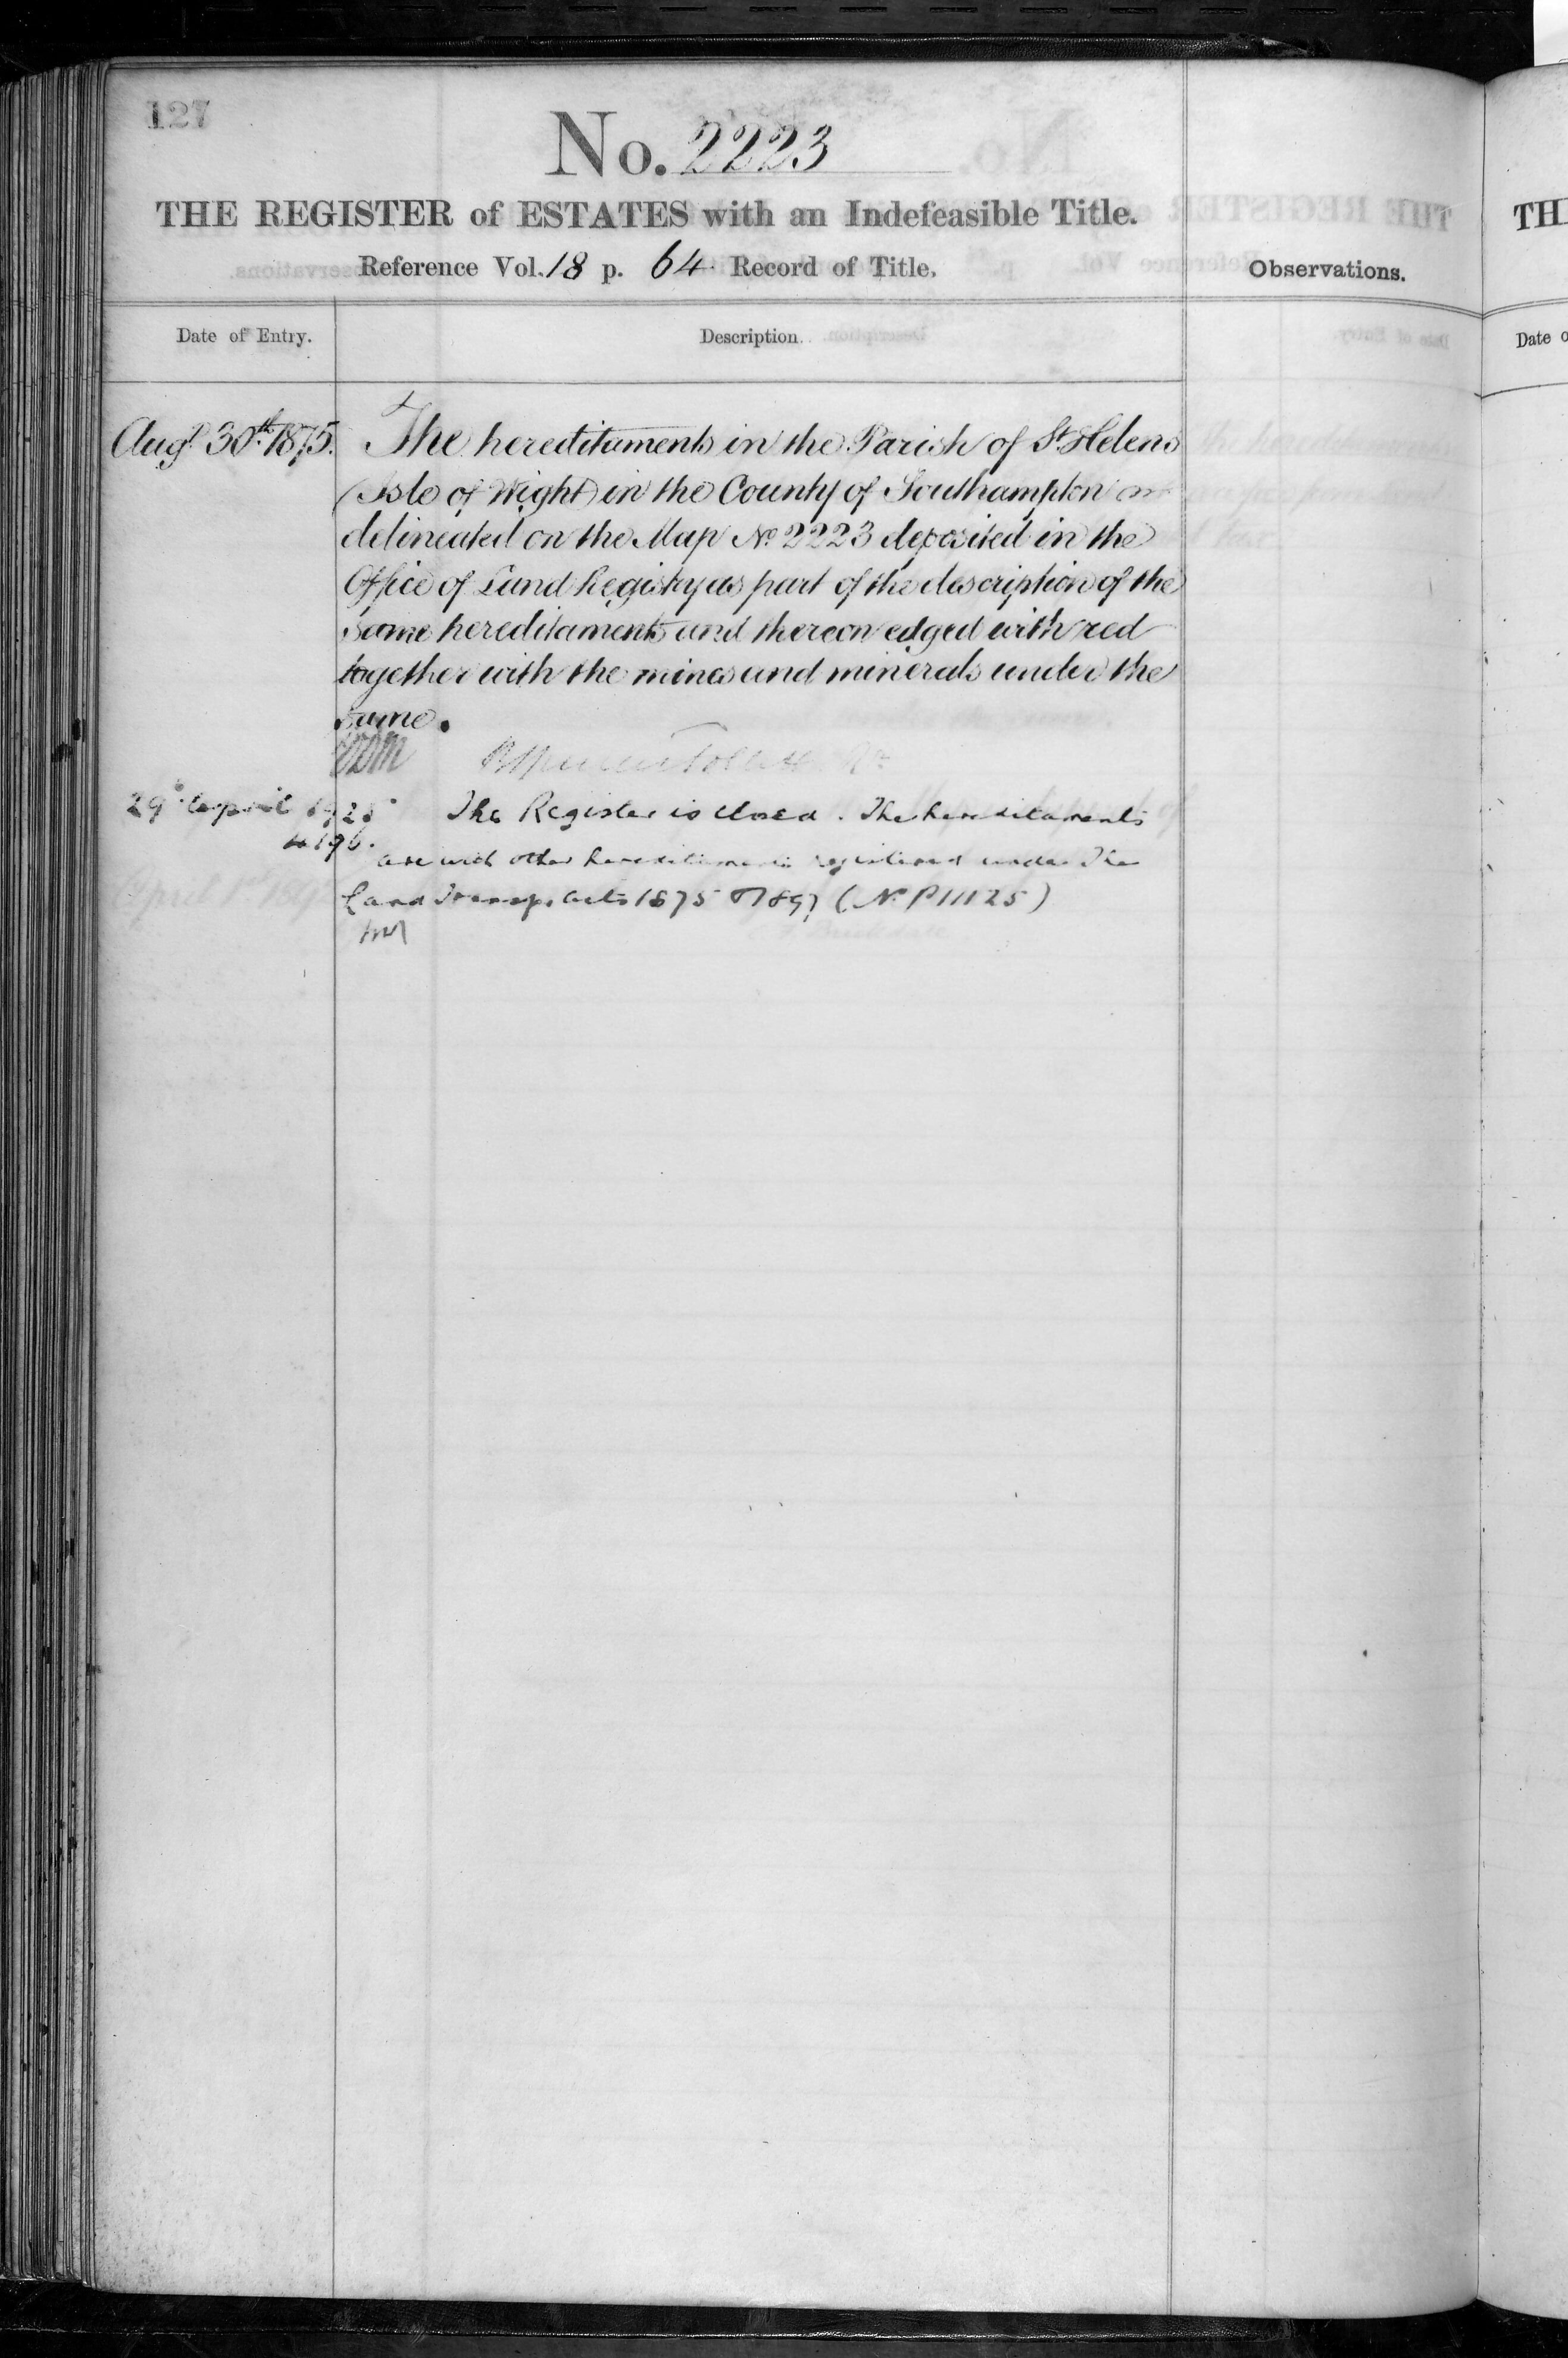 127
No. 2223
THE REGISTER of ESTATES with an Indefeasible Title.
Reference Vol. 18 p. 64 Record of Title.
Observations.
Date of Entry.
Description.
Augt 30th 1875. The hereditaments in the Parish of St Helens
(Isle of Wight) in the County of Southampton
delineated on the Map No 2223 deposited in the
Office of Land Registry as part of the description of the
same hereditaments and thereon edged with red
together with the mines and minerals under the
same.
29 April 1925 The Register is closed. The hereditaments
are with other hereditaments registered under The
Land Transfr Acts 1875 & 1897 (No P111125)
TH
Date o